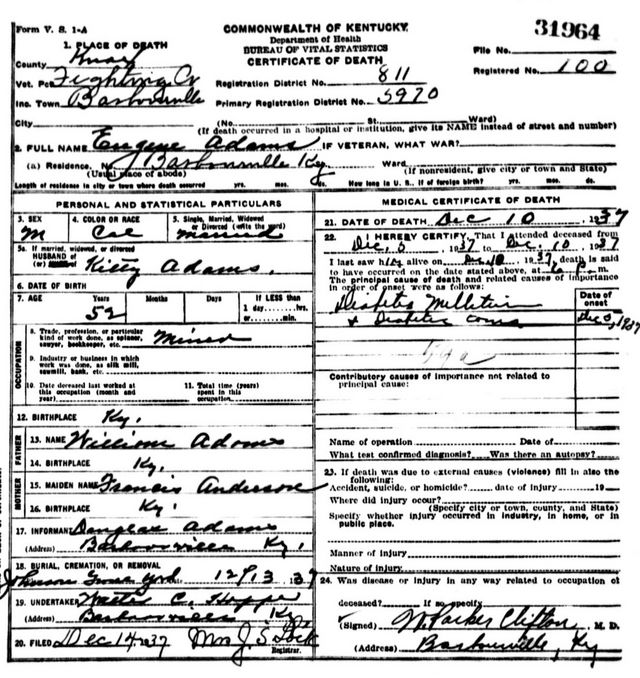 Form V. S. 1-A
COMMONWEALTH OF KENTUCKY
31964
Department of Health
BUREAU OF VITAL STATISTICS
CERTIFICATE OF DEATH
File No.
Registered No. 100
1. PLACE OF DEATH
County Knox
Vot. Pct. Fighting Cr
Inc. Town Barbourville
Registration District No. 811
Primary Registration District No. 5970
City (No. St. Ward)
(If death occurred in a hospital or institution, give its NAME instead of street and number)
2. FULL NAME Eugene Adams IF VETERAN, WHAT WAR?
(a) Residence. No. Barbourville Ky. Ward
(Usual place of abode) (If nonresident, give city or town and State)
Length of residence in city or town where death occurred yrs. mos. ds. How long in U. S., if of foreign birth? yrs. mos. ds.
PERSONAL AND STATISTICAL PARTICULARS
3. SEX
M
4. COLOR OR RACE
Col
5. Single, Married, Widowed
or Divorced (write the word)
married
5a. If married, widowed, or divorced
HUSBAND of
(or)
Kitty Adams.
6. DATE OF BIRTH
7. AGE Years Months Days If LESS than
52
1 day hrs.
or min.
OCCUPATION
8. Trade, profession, or particular
kind of work done, as spinner,
sawyer, bookkeeper, etc.
Miner
9. Industry or business in which
work was done, as silk mill,
sawmill, bank, etc.
10. Date deceased last worked at
this occupation (month and
year)
11. Total time (years)
spent in this
occupation
12. BIRTHPLACE Ky.
FATHER
13. NAME William Adams
14. BIRTHPLACE Ky.
MOTHER
15. MAIDEN NAME Francis Anderson
16. BIRTHPLACE Ky.
17. INFORMANT Douglas Adams
(Address) Barbourville Ky.
18. BURIAL, CREMATION, OR REMOVAL
Johnson Grave Yard 12/13 37
19. UNDERTAKER C. Hopper
(Address) Barbourville Ky.
20. FILED Dec 14 37 Mrs J. S. Lock
Registrar.
MEDICAL CERTIFICATE OF DEATH
21. DATE OF DEATH Dec 10, 1937
22. I HEREBY CERTIFY, That I attended deceased from
Dec. 5, 1937 to Dec. 10, 1937
I last saw him alive on Dec 10, 1937, death is said
to have occurred on the date stated above, at 6 p. m.
The principal cause of death and related causes of importance
in order of onset were as follows:
Date of
onset
Diabetes Mellitus
& Diabetic coma
1937
59a
Contributory causes of importance not related to
principal cause:
Name of operation Date of
What test confirmed diagnosis? Was there an autopsy?
23. If death was due to external causes (violence) fill in also the
following:
Accident, suicide, or homicide? date of injury 19
Where did injury occur?
(Specify city or town, county, and State)
Specify whether injury occurred in industry, in home, or in
public place.
Manner of injury
Nature of injury
24. Was disease or injury in any way related to occupation of
deceased? If so specify
(Signed) W. Parker Clifton M. D.
(Address) Barbourville, Ky